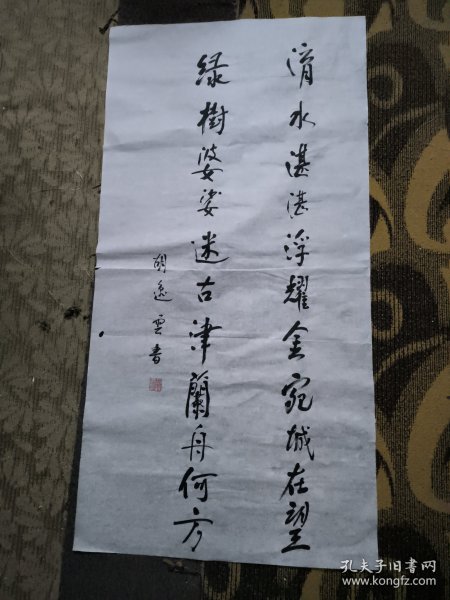 淯水湛湛浮耀金宛城在望
绿樹婆娑迷古津蘭舟何方
胡逸雲書
孔夫子旧书网
www.kongfz.com